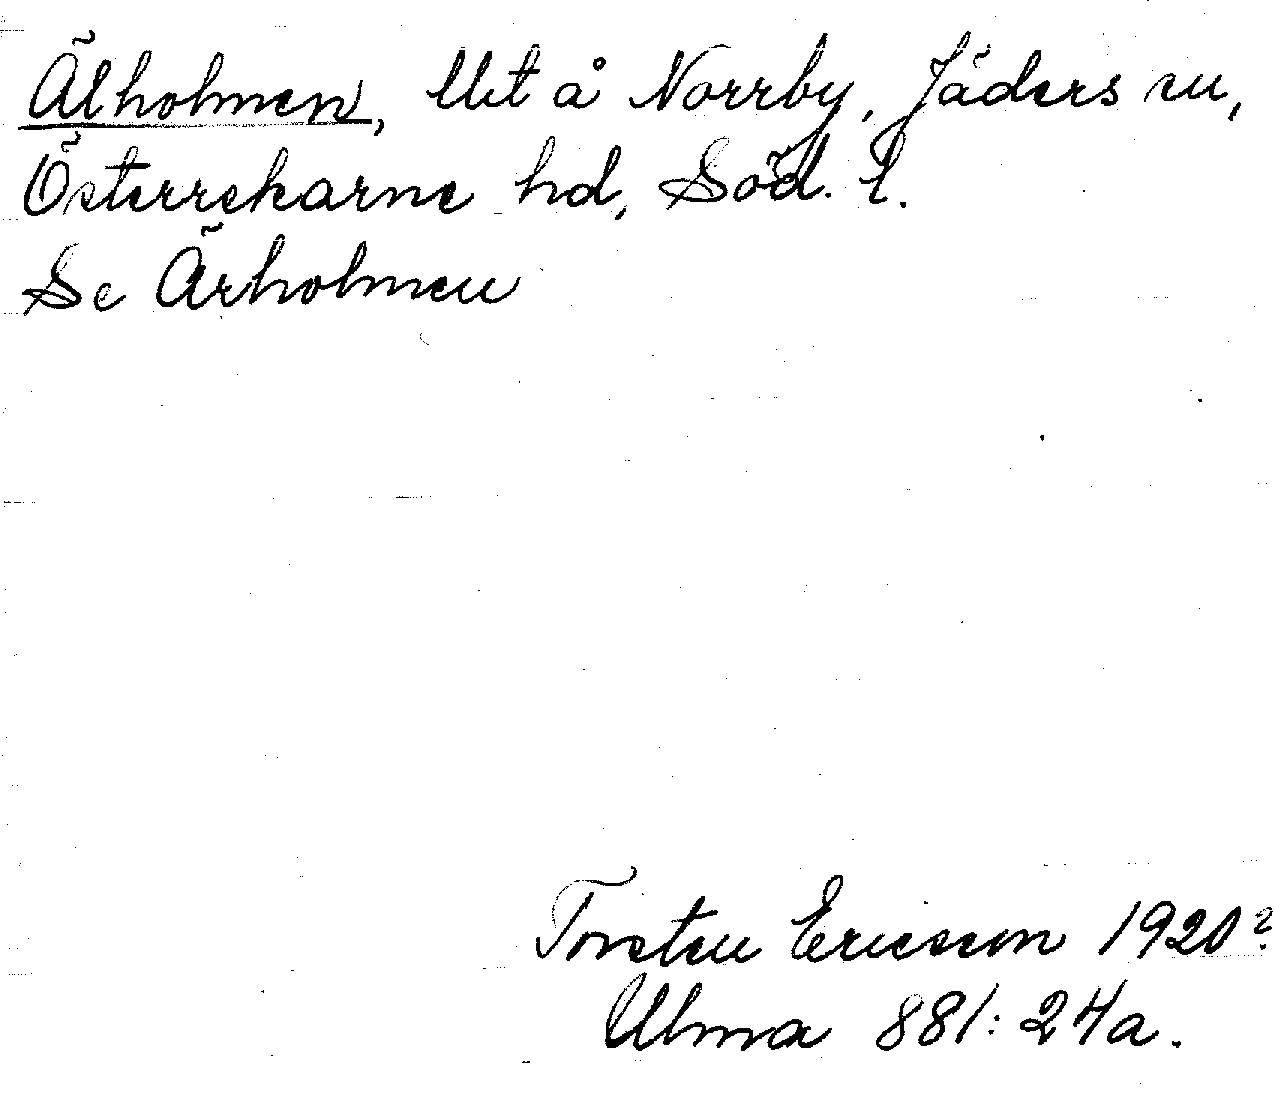 Älholmen, Utt å Norrby, Jäders sn,
Österrekarne hd, Söd. l.
Se Ärholmen
Torsten Ericsson 1920?
Ulma 881:24a.